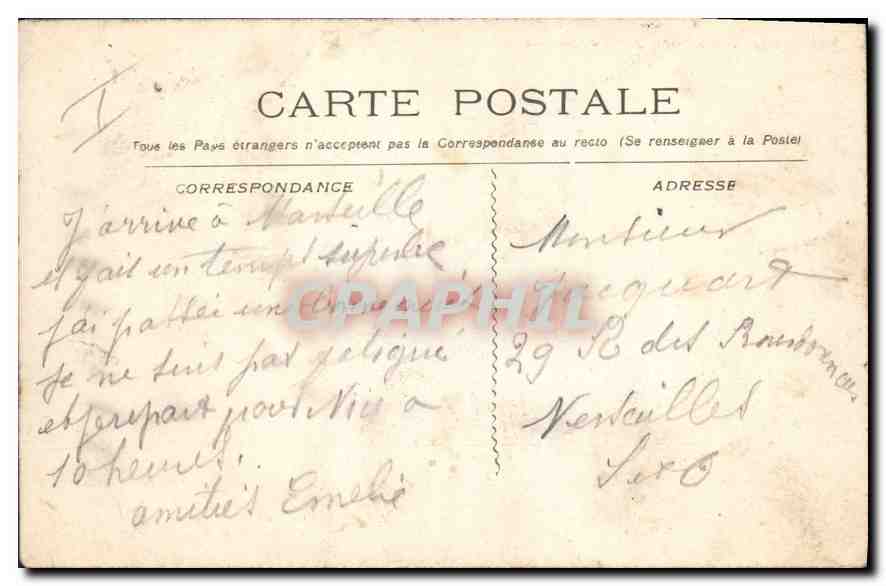 I
CARTE POSTALE
Tous les Pays étrangers n'acceptent pas la Correspondanse au recto (Se renseigner à la Poste)
CORRESPONDANCE
J'arrive à Marseille
et fait un temps superbe
j'ai passer une bonne nuit
je ne suis pas fatigué
et je repart pour Nice a
10 heures.
amitiés Emelie
ADRESSE
Monsieur
Jacquart
29 R des
Versailles
S et O
CPAPHIL